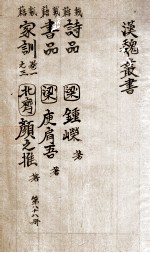 漢魏叢書
詩品 梁 鍾嶸 著
書品 梁 庾肩吾 著
家訓 卷一之三 北齊 顏之推 著
第六十八冊